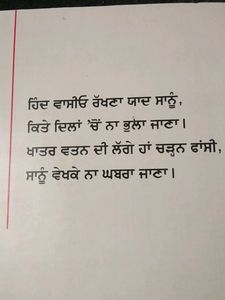 ਹਿੰਦ ਵਾਸੀਓ ਰੱਖਣਾ ਯਾਦ ਸਾਨੂੰ,
ਕਿਤੇ ਦਿਲਾਂ 'ਚੋਂ ਨਾ ਭੁਲਾ ਜਾਣਾ।
ਖਾਤਰ ਵਤਨ ਦੀ ਲੱਗੇ ਹਾਂ ਚੜ੍ਹਨ ਫਾਂਸੀ,
ਸਾਨੂੰ ਵੇਖਕੇ ਨਾ ਘਬਰਾ ਜਾਣਾ।